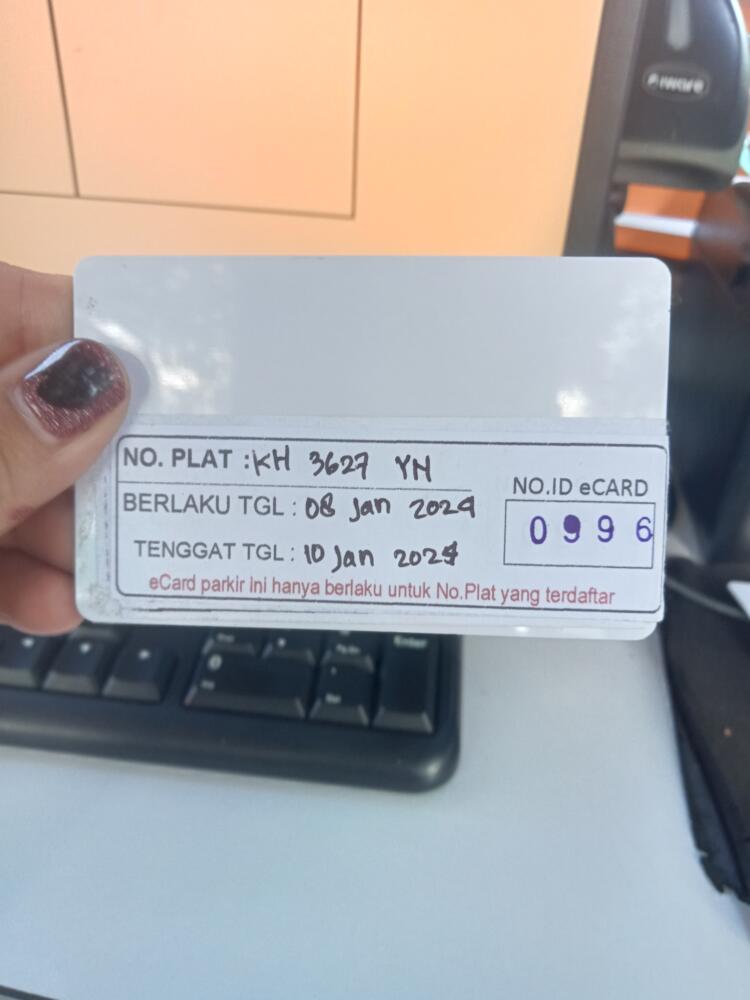 NO. PLAT : KH 3627 YN
NO.ID eCARD
BERLAKU TGL : 08 Jan 2024
0996
TENGGAT TGL : 10 Jan
eCard parkir ini hanya berlaku untuk No.Plat yang terdaftar
Enter